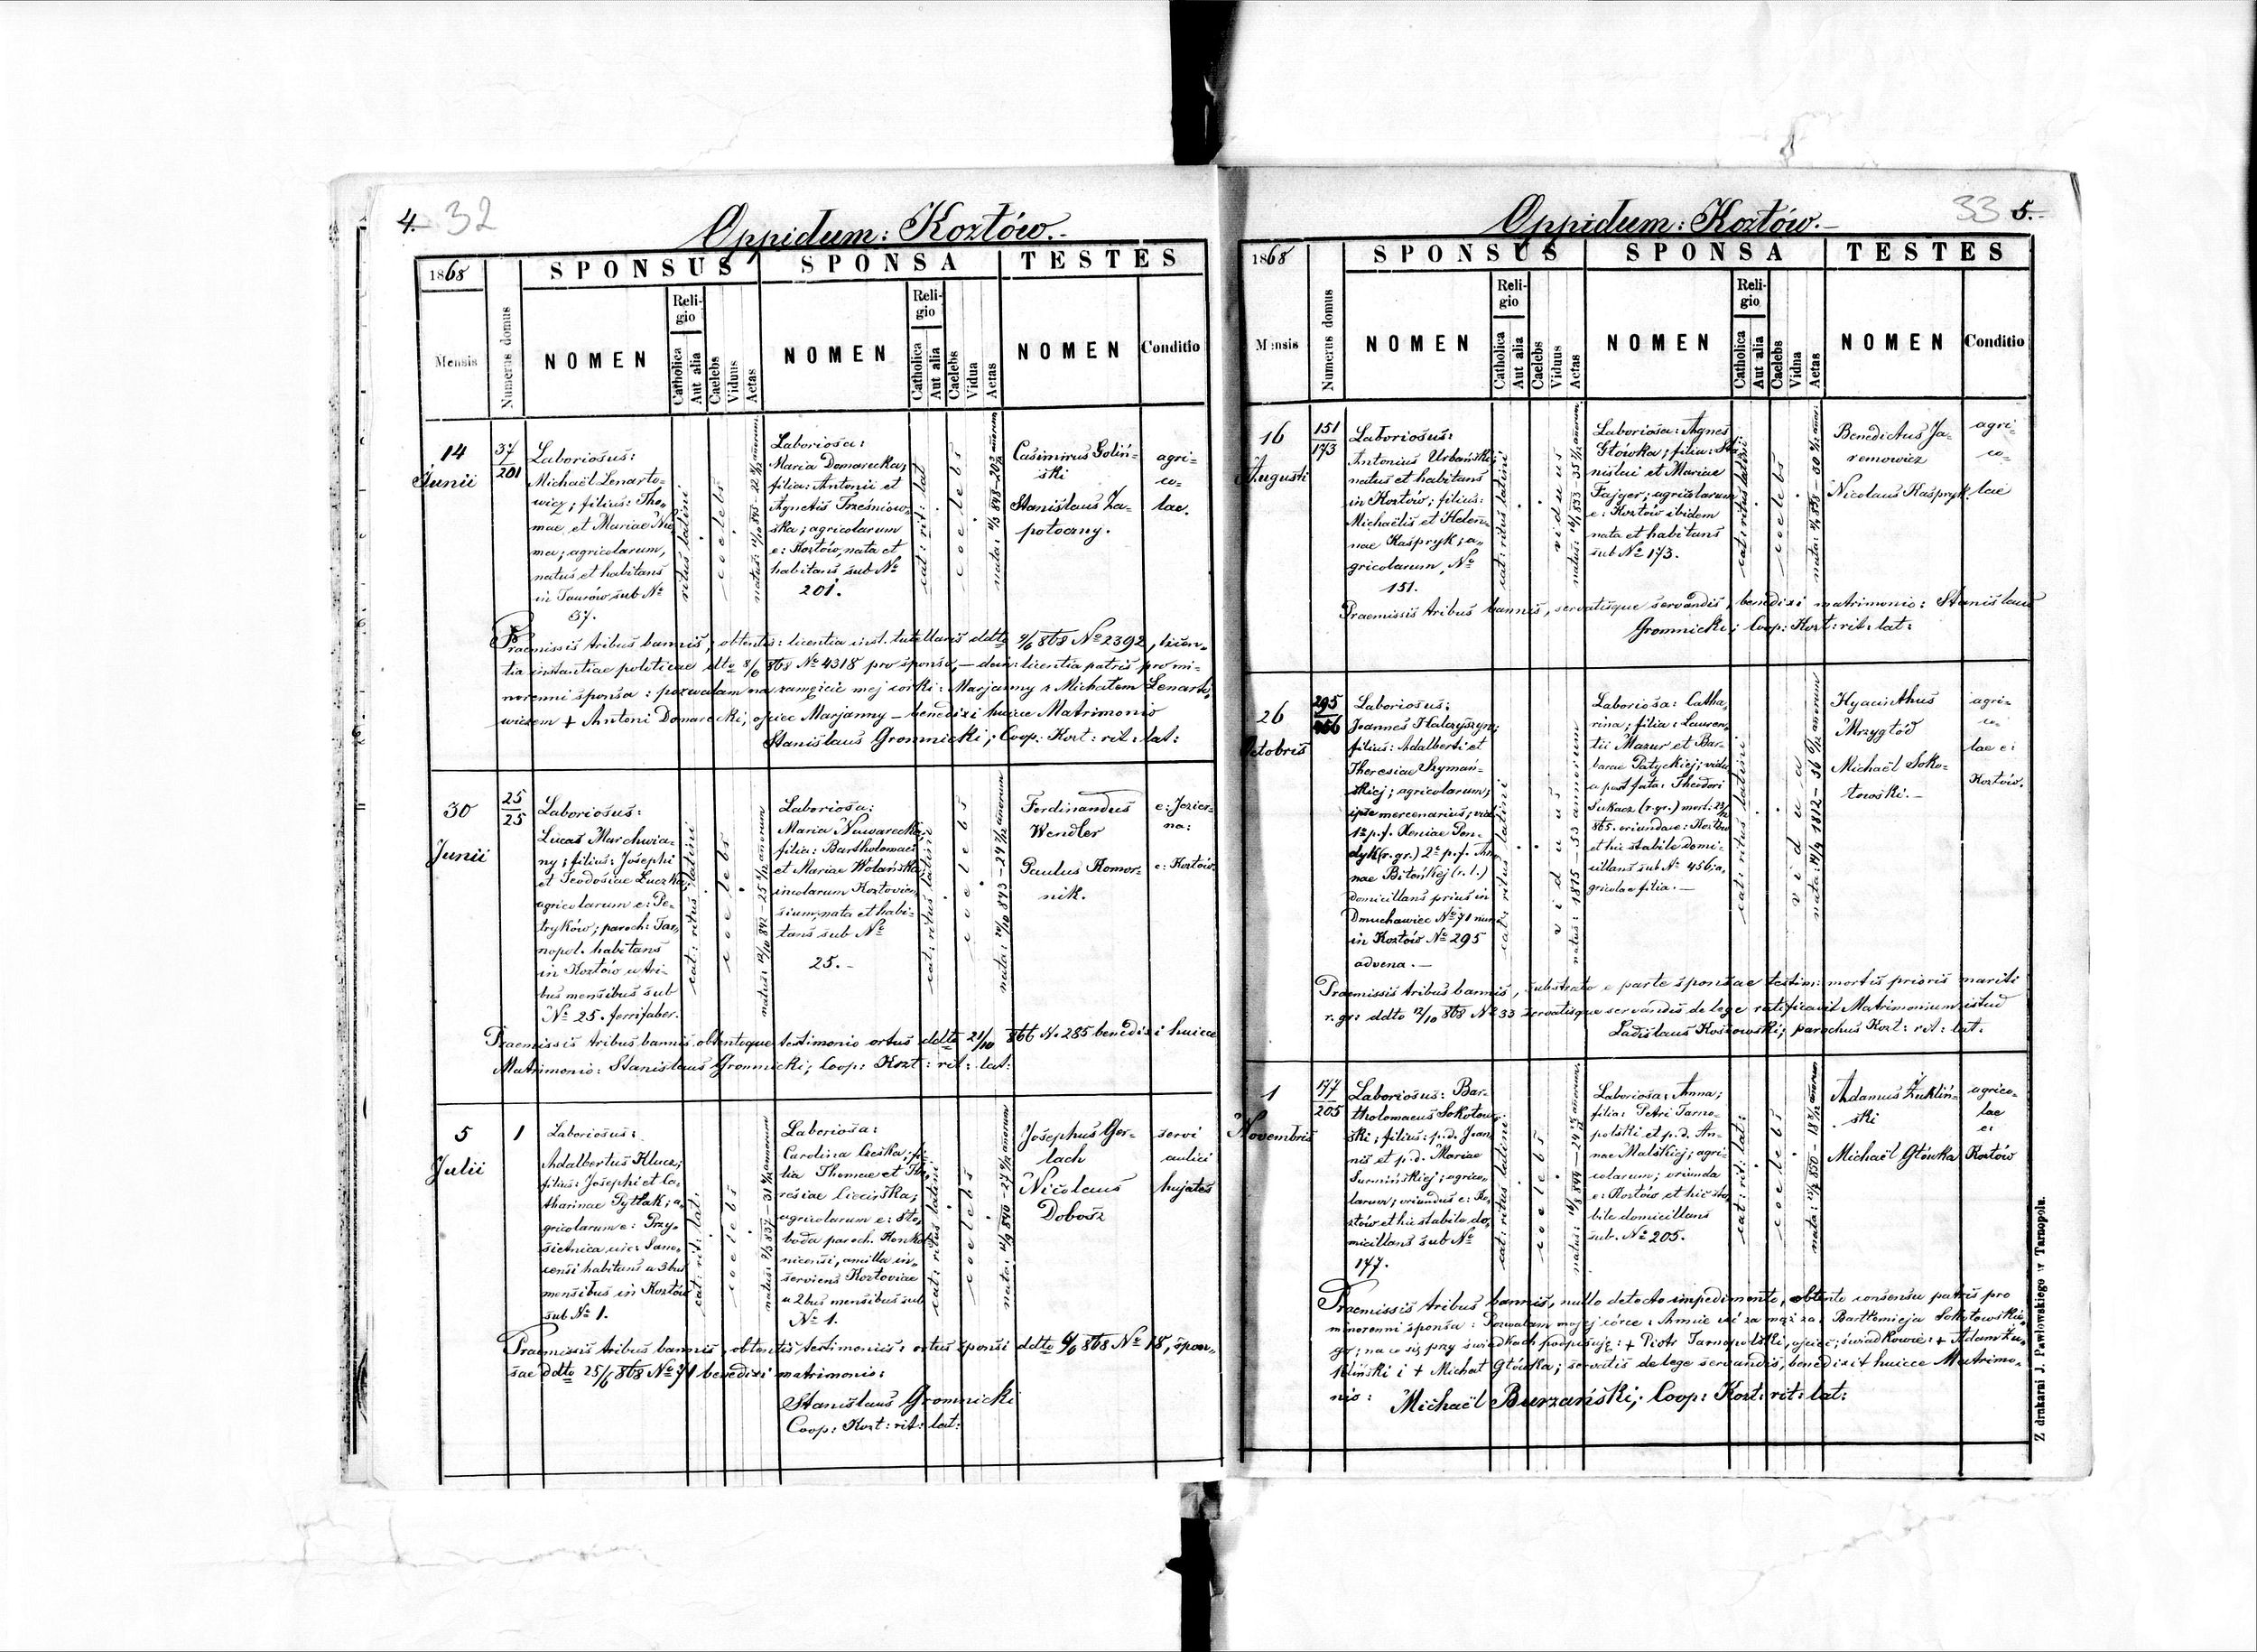 4. 32
Oppidum: Kozłów.
1868
SPONSUS
SPONSA
TESTES
Mensis
Numerus domus
NOMEN
Religio
Catholica
Aut alia
Caelebs
Viduus
Aetas
NOMEN
Religio
Catholica
Aut alia
Caelebs
Vidua
Aetas
NOMEN
Conditio
14
Junii
37
201
Laboriosus:
Michaël Lenarto-
wicz; filius: Tho-
mae et Mariae
agricolarum,
natus et habitans
in Taurów sub No
37.
ritus latini
coelebs
Laboriosa:
Maria Domarecka;
filia: Antonii et
Agnetis Trześniow-
ska; agricolarum
e: Kozłów, nata et
habitans sub No
201.
cat: rit: lat
coelebs
Casimirus Goliń-
ski
Stanislaus Za-
potoczny.
agri-
co-
lae.
Praemissis tribus bannis, obtentis: licentia inst. tutellaris ddto 9/6 868 No 2392, licen-
tia instantiae politicae ddto 8/6 868 No 4318 pro sponso, – dein: licentia patris pro mi-
norenni sponsa: pozwalam na zamęście mej córki: Marjanny z Michałem Lenarto-
wiczem + Antoni Domarecki, ojciec Marjanny – benedixi huicce Matrimonio
Stanislaus Gromnicki; Coop: Kozł: rit: lat:
30
Junii
25
25
Laboriosus:
Lucas Marchwia-
ny; filius: Josephi
et Teodosiae Łuczka;
agricolarum e: Pe-
tryków; paroch: Tar-
nopol. habitans
in Kozłów a tri-
bus mensibus sub
No 25. ferrifaber.
cat: ritus latini
coelebs
natus: 12/10 842 – 25 annorum
Laboriosa:
Maria Nuwarecka;
filia: Bartholomaei
et Mariae Wolańska
incolarum Kozłovien-
sium, nata et habi-
tans sub No
25.–
cat: ritus latini
coelebs
Ferdinandus
Wendler
Paulus Komor-
nik.
e: Jezier-
na:
e: Kozłów.
Praemissis tribus bannis obtentoque testimonio ortus ddto 21/10 866 N. 285 benedixi huicce
Matrimonio: Stanislaus Gromnicki; Coop: Kozł: rit: lat:
5
Julii
1
Laboriosus:
Adalbertus Klucz;
filius: Josephi et Ca-
tharinae Pytlak; a-
gricolarum e: Przy-
sietnica
habitans a 3bus
mensibus in Kozłów
sub No 1.
cat: rit: lat:
coelebs
Laboriosa:
Carolina Cieśka; fi-
lia Thomae et The-
resiae Ciecińska;
agricolarum e: Sło-
boda paroch. Konko-
nicensi, ancilla in-
serviens Kozłoviae
a 2bus mensibus sub
No 1.
cat: ritus latini
coelebs
Josephus Ger-
lach
Nicolaus
Dobosz
servi
aulici
hujates
Praemissis tribus bannis, obtentis testimoniis: ortus sponsi ddto 6/6 868 No 18, spon-
sae ddto 25/6 868 No 71 benedixi matrimonio:
Stanislaus Gromnicki
Coop: Kozł: rit: lat:
33 5.
Oppidum: Kozłów.
1868
SPONSUS
SPONSA
TESTES
Mensis
Numerus domus
NOMEN
Religio
Catholica
Aut alia
Caelebs
Viduus
Aetas
NOMEN
Religio
Catholica
Aut alia
Caelebs
Vidua
Aetas
NOMEN
Conditio
16
Augusti
151
173
Laboriosus:
Antonius Urbański;
natus et habitans
in Kozłów; filius:
Michaëlis et Hele-
nae Kaspryk; a-
gricolarum, No
151.
cat: ritus latini
viduus
Laboriosa: Agnes
Główka; filia: Sta-
nislai et Mariae
Fajger; agricolarum
e: Kozłów ibidem
nata et habitans
sub No 173.
cat: ritus latini
coelebs
Benedictus Ja-
remowicz
Nicolaus Kaspryk
agri-
co-
lae
Praemissis tribus bannis, servatisque servandis, benedixi matrimonio: Stanislaus
Gromnicki; Coop: Kozł: rit: lat:
26
Octobris
295
456
Laboriosus:
Joannes Halczyszyn;
filius: Adalberti et
Theresiae Szymań-
skiej; agricolarum;
ipse mercenarius;
1o p.f. Xeniae Pen-
dyk (r.gr.) 2o p.f. An-
nae Bitońskiej (r. l.)
domicilians prius in
Dmuchawiec No 71 nunc
in Kozłów No 295
advena.–
cat: ritus latini
viduus
natus: 1815 – 53 annorum
Laboriosa: Catha-
rina; filia: Lauren-
tii Mazur et Bar-
barae Patyckiej; vidu-
a post fata: Theodori
Sukacz (r.gr.) mort:
865. oriunda e: Kozłów
et hic stabile domi-
cilians sub No 456; a-
gricolae filia.–
cat: ritus latini
vidua
Hyacinthus
Mrzygłód
Michaël Soko-
łowski.–
agri-
co-
lae ei
Kozłów.
Praemissis tribus bannis, substrato e parte sponsae testim: mortis prioris mariti
r.gr: ddto 12/10 868 No 33 servatisque servandis de lege ratificavit Matrimonium istud
Ladislaus Koszowski; parochus Kozł: rit: lat:
1
Novembris
177
205
Laboriosus: Bar-
tholomaeus Sokołow-
ski; filius: p.d. Joan-
nis et p.d. Mariae
Surmińskiej; agrico-
larum; oriundus e: Ko-
złów et hic stabile do-
micilians sub No
177.
cat: ritus latini
coelebs
Laboriosa: Anna;
filia: Petri Tarno-
polski et p.d. An-
nae Malskiej; agri-
colarum; oriunda
e: Kozłów et hic sta-
bile domicilians
sub. No 205.
cat: rit: lat:
coelebs
Adamus Żukliń-
ski
Michaël Główka
agrico-
lae
ei
Kozłów
Praemissis tribus bannis, nullo detecto impedimento, obtento consensu patris pro
minorenni sponsa: Pozwalam mojej córce: Annie iść za mąż za: Bartłomieja Sokołowskie-
go; na co się przy świadkach podpisuję: + Piotr Tarnopolski, ojciec; świadkowie: + Adam Żu-
kliński i + Michał Główka; servatis de lege servandis, benedixit huicce Matrimo-
nio: Michaël Burzański; Coop: Kozł: rit: lat:
Z drukarni J. Pawłowskiego w Tarnopolu.